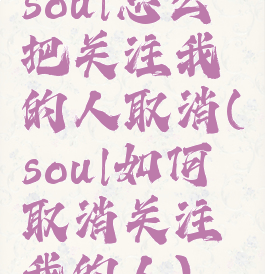 soul怎么
把关注我
的人取消(
soul如何
取消关注
我的人)